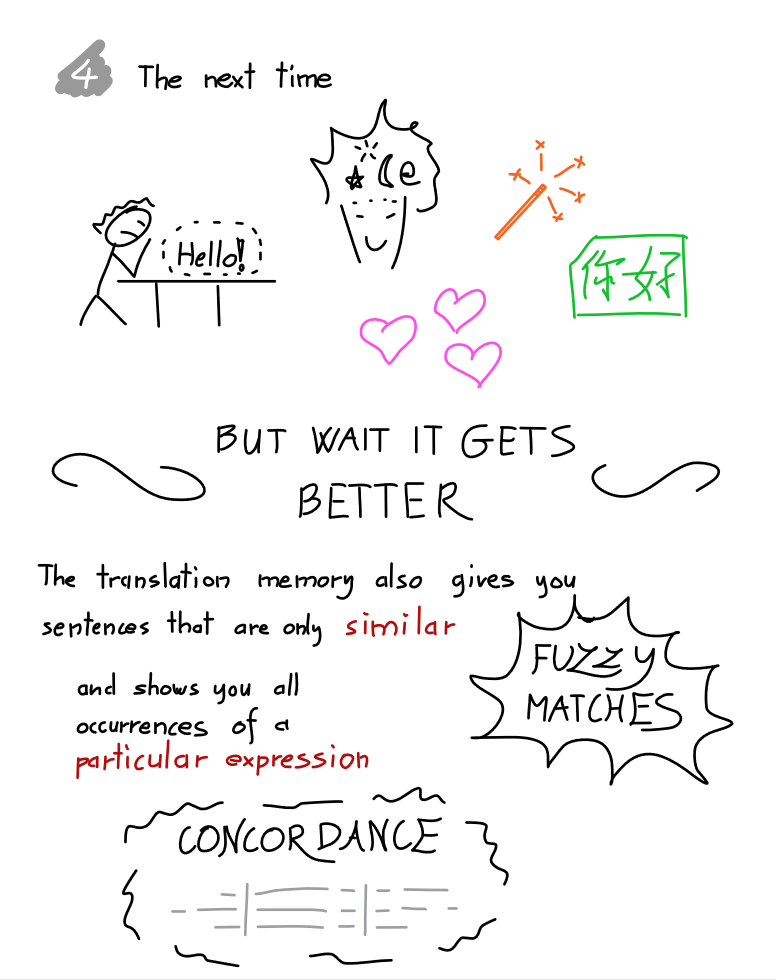 4 The next time
Hello!
你好
BUT WAIT IT GETS
BETTER
The translation memory also gives you
sentences that are only similar
FUZZY
MATCHES
and shows you all
occurrences of a
particular expression
CONCORDANCE